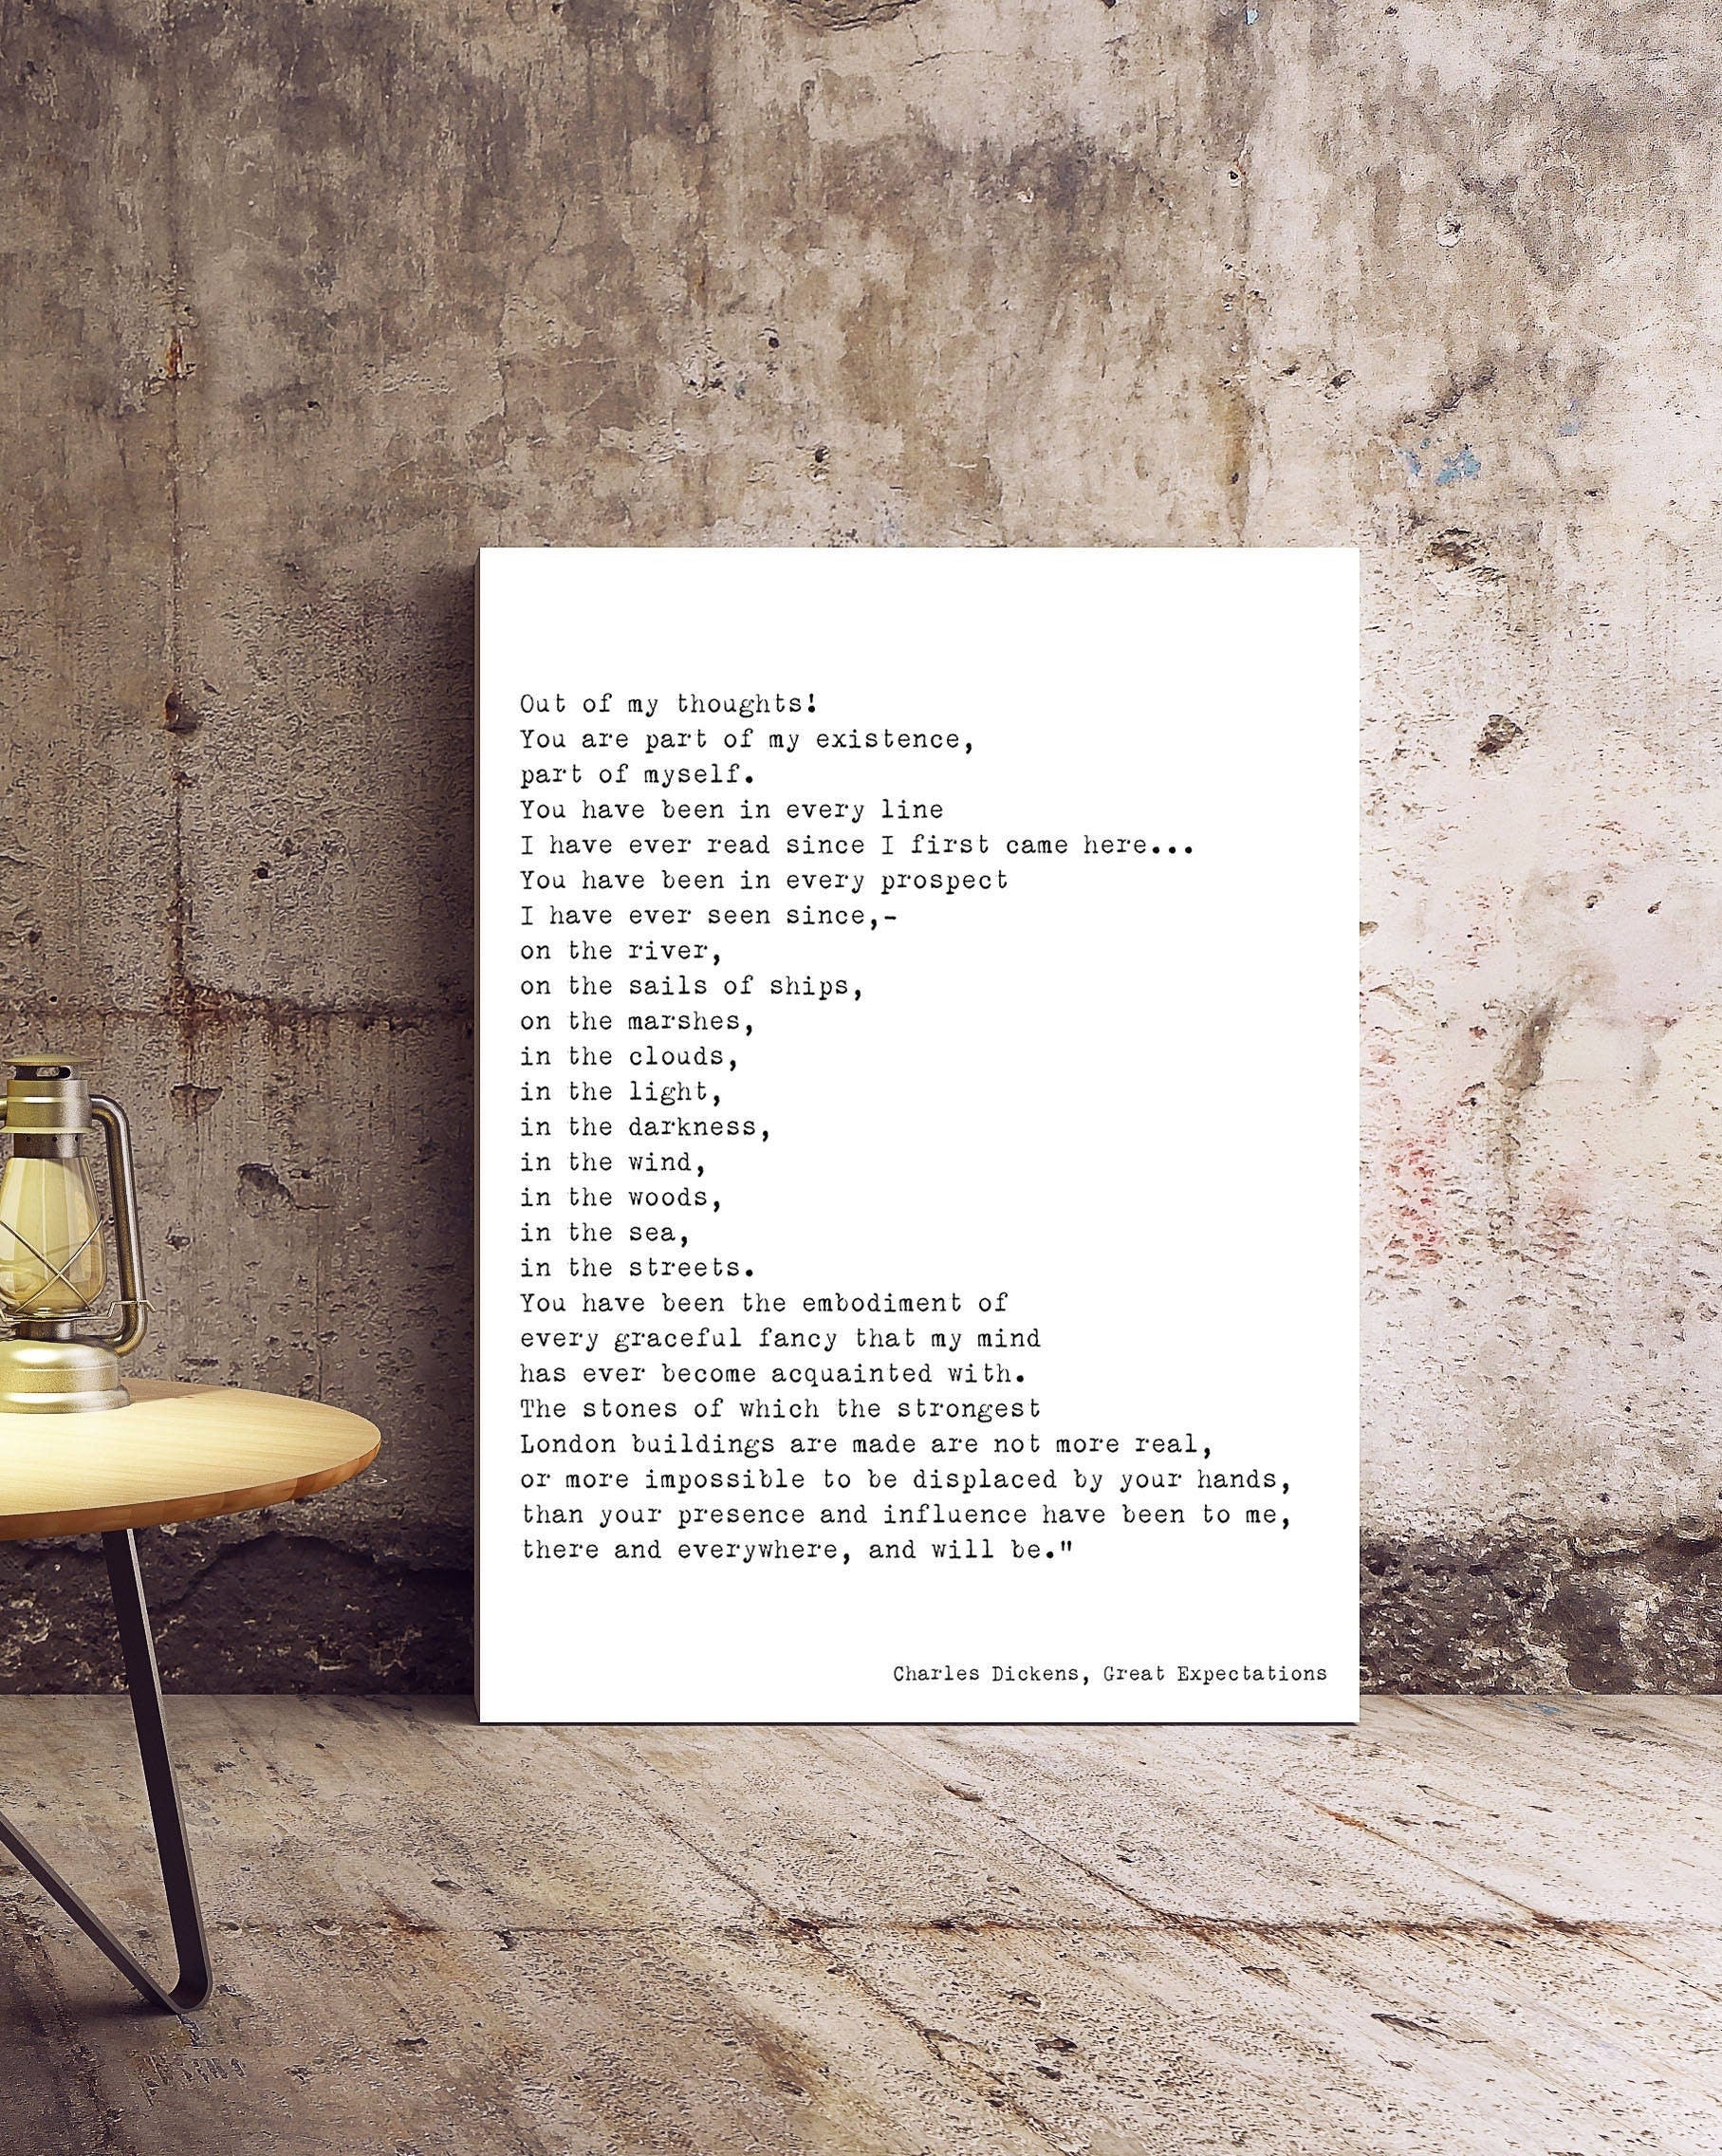 Out of my thoughts!
You are part of my existence,
part of myself.
You have been in every line
I have ever read since I first came here...
You have been in every prospect
I have ever seen since,-
on the river,
on the sails of ships,
on the marshes,
in the clouds,
in the light,
in the darkness,
in the wind,
in the woods,
in the sea,
in the streets.
You have been the embodiment of
every graceful fancy that my mind
has ever become acquainted with.
The stones of which the strongest
London buildings are made are not more real,
or more impossible to be displaced by your hands,
than your presence and influence have been to me,
there and everywhere, and will be."
Charles Dickens, Great Expectations